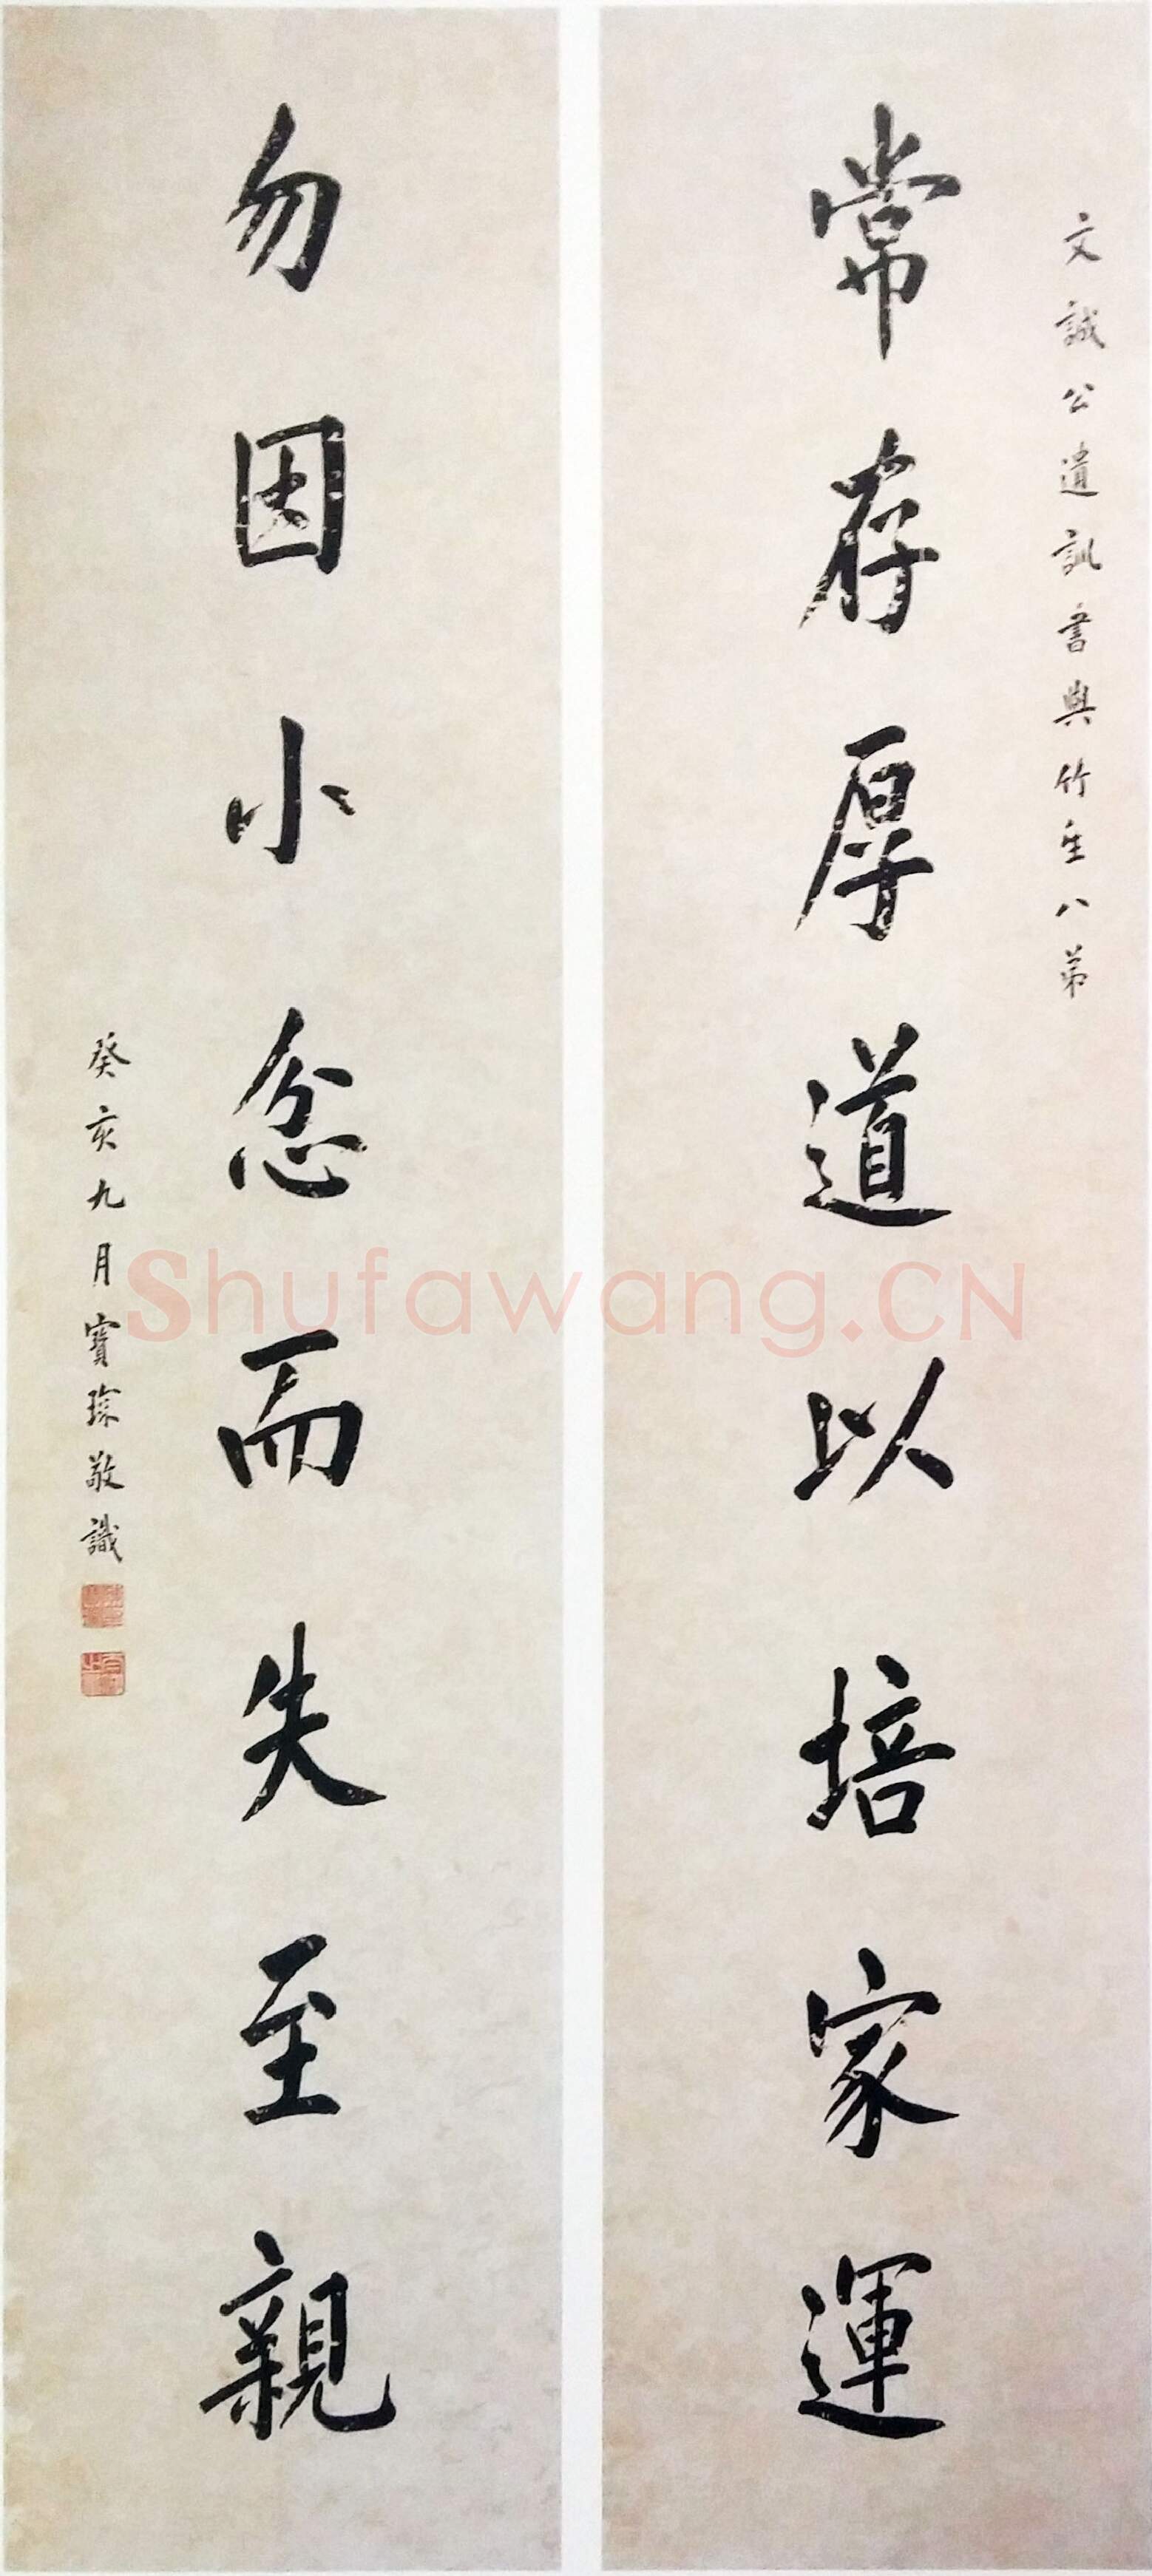 文誠公遺訓書與竹生八弟
常存厚道以培家運
勿因小忿而失至親
癸亥九月寶琛敬識
Shufawang.CN